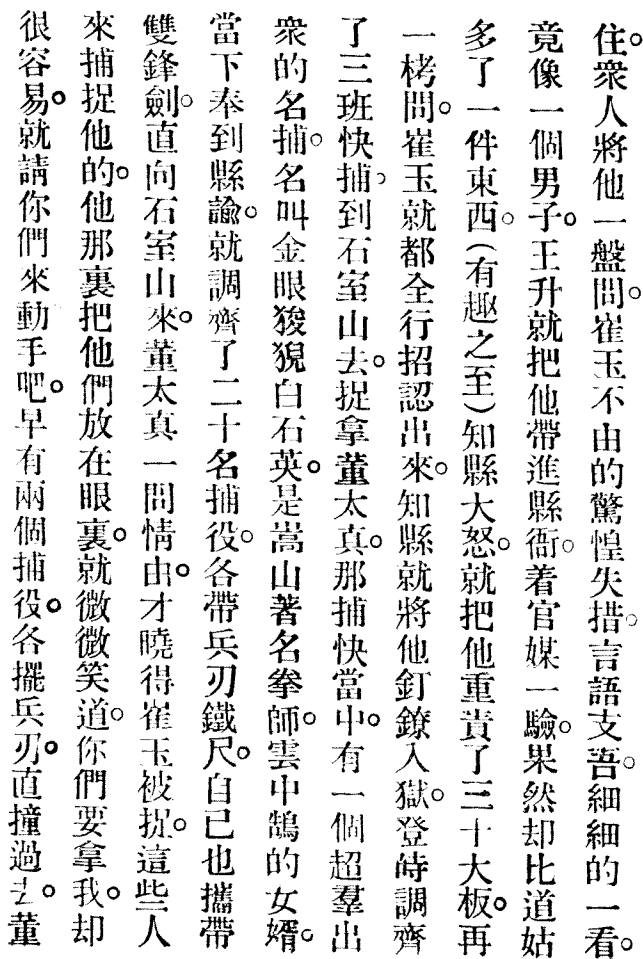 住。衆人將他一盤問。崔玉不由的驚惶失措。言語支吾。細細的一看。
竟像一個男子。王升就把他帶進縣衙。着官媒一驗。果然却比道姑
多了一件東西。(有趣之至)知縣大怒。就把他重責了三十大板。再
一栲問。崔玉就都全行招認出來。知縣就將他釘鐐入獄。登時調齊
了三班快捕。到石室山去。捉拿董太真。那捕快當中。有一個超羣出
衆的名捕。名叫金眼狻猊白石英。是嵩山著名拳師。雲中鵠的女婿。
當下奉到縣諭。就調齊了二十名捕役。各帶兵刃鐵尺。自已也攜帶
雙鋒劍。直向石室山來。董太真一問情由。才曉得崔玉被捉。這些人
來捕捉他的。他那裏把他們放在眼裏。就微微笑道。你們要拿我。却
很容易。就請你們來動手吧。早有兩個捕役。各擺兵刃。直撞過去。董